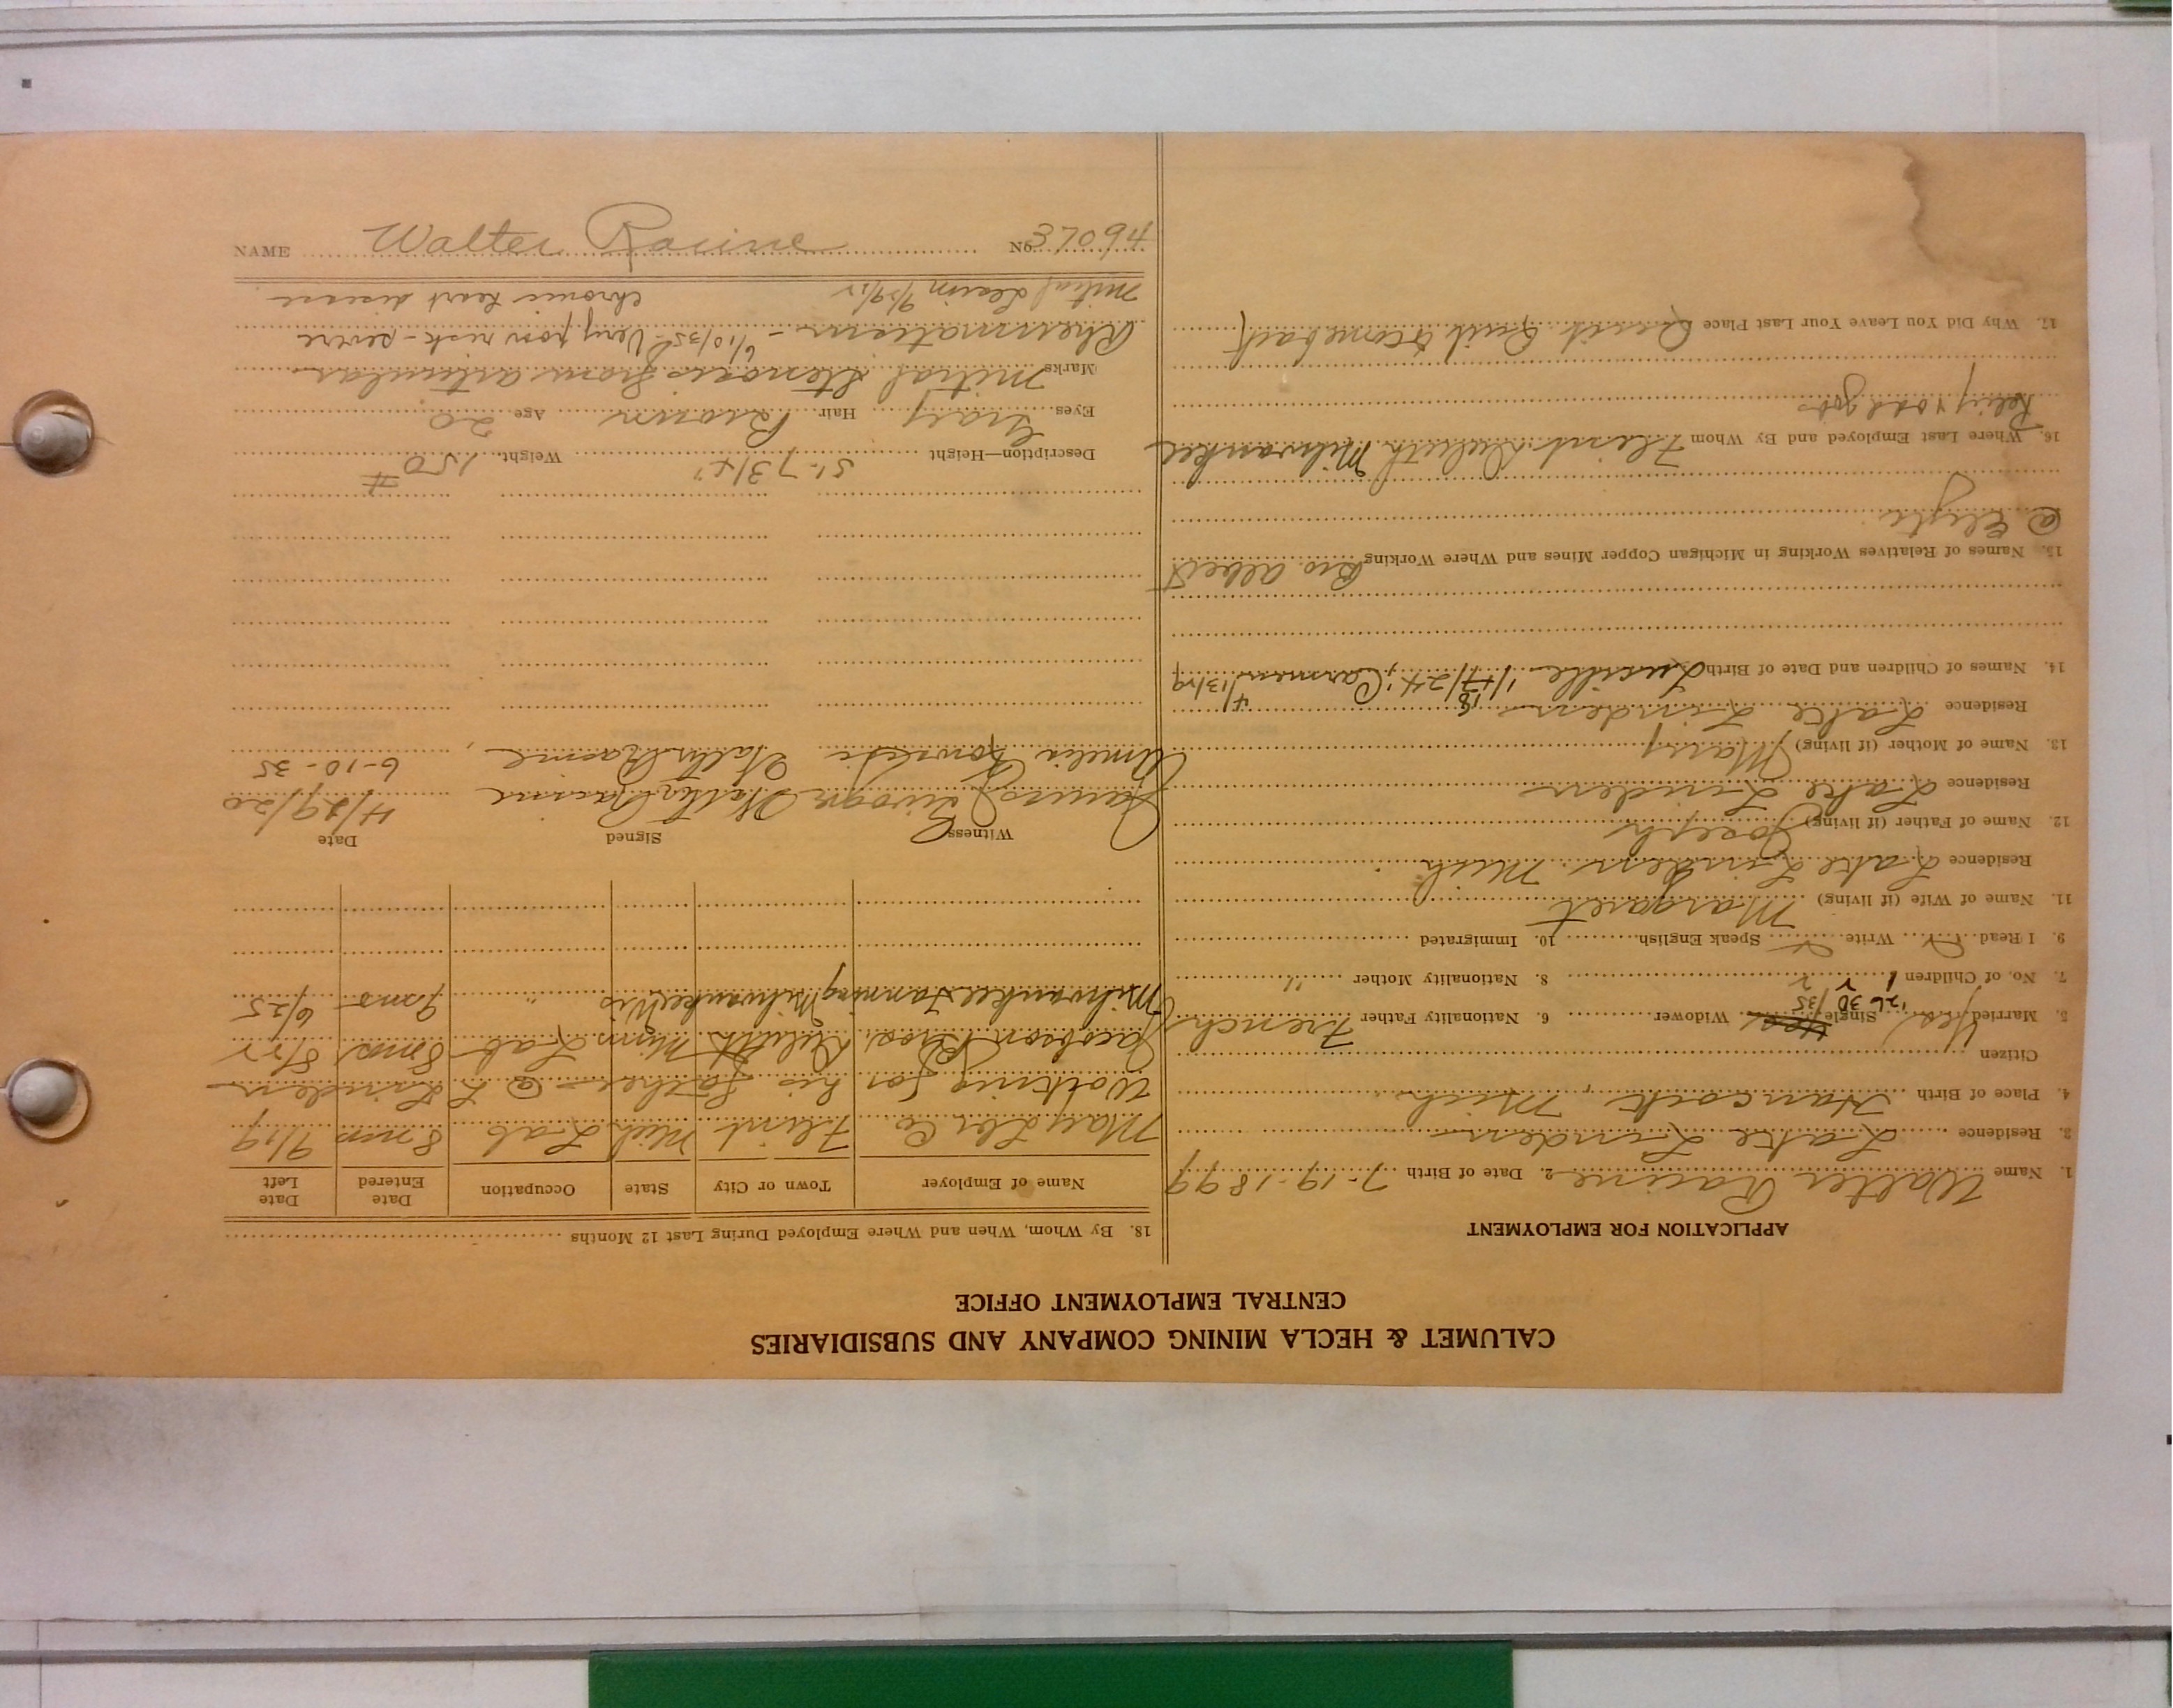 CALUMET & HECLA MINING COMPANY AND SUBSIDIARIES
CENTRAL EMPLOYMENT OFFICE
APPLICATION FOR EMPLOYMENT
1. Name Walter Racine 2. Date of Birth 7-19-1899
3. Residence Lake Linden
4. Place of Birth Hancock, Mich
Citizen
5. Married Yes '26 Single 30/35 Widower 6. Nationality Father French
7. No. of Children 1 2 8. Nationality Mother "
9. I Read Write Speak English 10. Immigrated
11. Name of Wife (if living) Margaret
Residence Lake Linden Mich
12. Name of Father (if living) Joseph
Residence Lake Linden
13. Name of Mother (if living) Mary
Residence Lake Linden
14. Names of Children and Date of Birth Lucille 1/18/24; Carmen 4/13/29
15. Names of Relatives Working in Michigan Copper Mines and Where Working Bro. Albert
@
16. Where Last Employed and By Whom Flint Duluth Milwaukee
road jobs
17. Why Did You Leave Your Last Place Quit Quit to come back
18. By Whom, When and Where Employed During Last 12 Months
Name of Employer Town or City State Occupation Date Entered Date Left
Lbr Co. Flint Mich Lab 8 mos 9/19
Working for his father @ L Linden
Jacobson Bros. Duluth Minn Lab 8 mos 8/22
Milwaukee Tanning Milwaukee Wis " 9 mos 6/25
Witness Signed Date
James Walter Racine 4/29/20
Amelia Walter Racine 6-10-35
Description—Height 5'-7 3/4" Weight 150 #
Eyes Gray Hair Brown Age 20
Marks Mitral stenosis from articular
Rheumatism - 6/10/35 Very poor risk - severe
Mitral Lesion 9/29/22 chronic heart disease
NAME Walter Racine No 37094